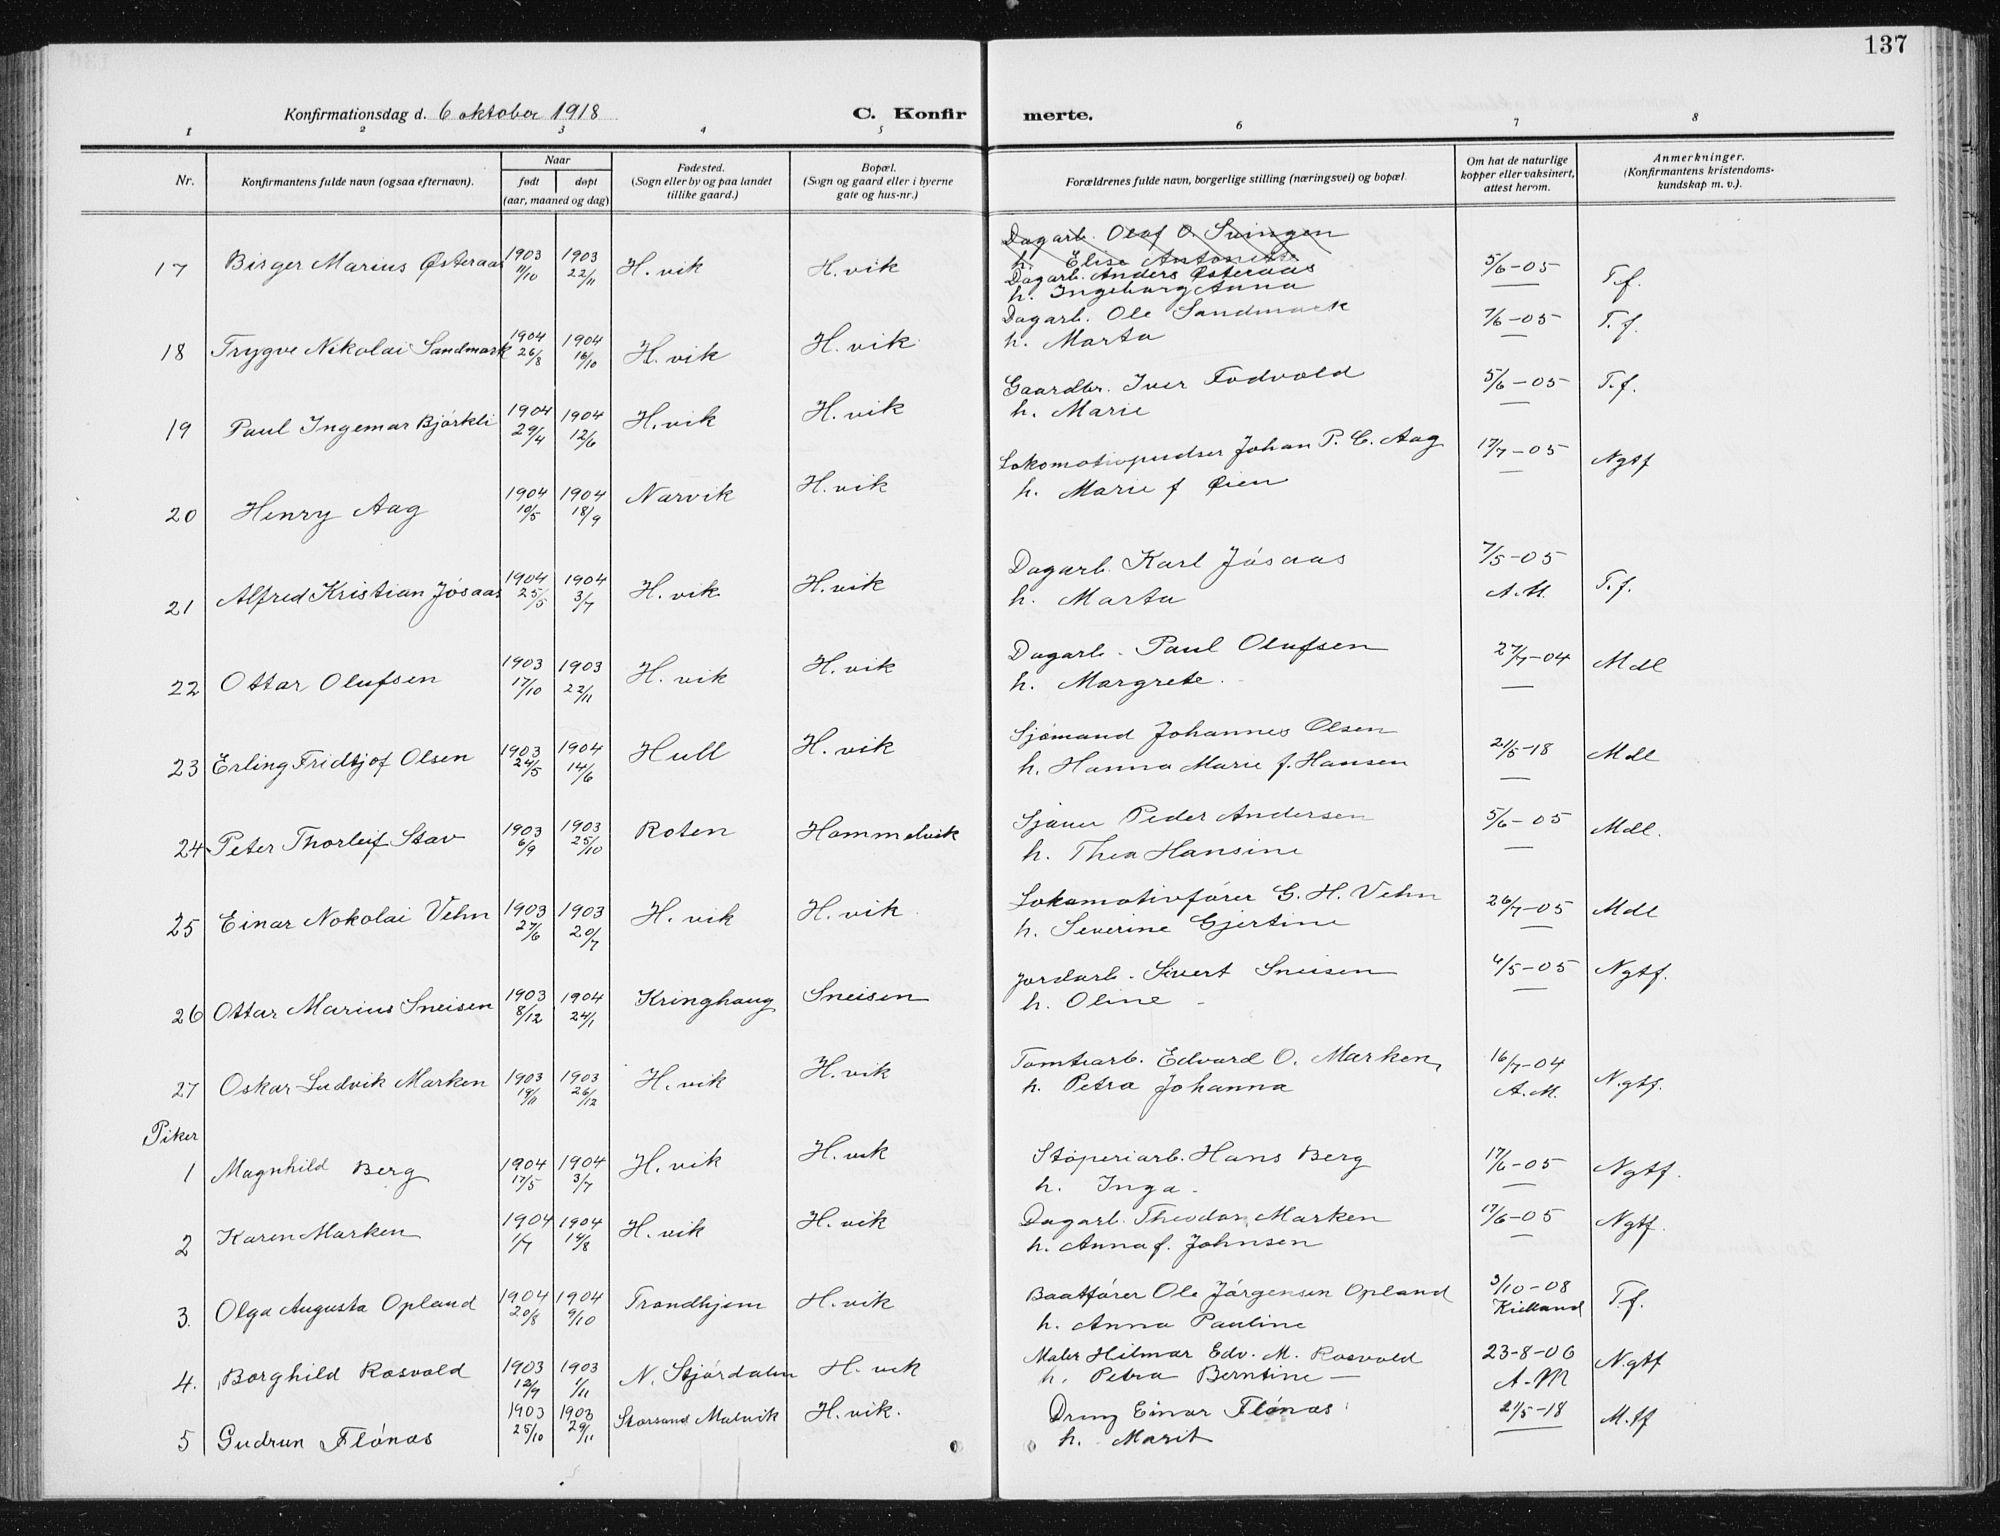 137
Konfirmationsdag d. 6 oktober 1918 C. Konfir merte.
1 2 3 4 5 6 7 8
Nr. Konfirmantens fulde navn (ogsaa efternavn). Naar født døpt (aar, maaned og dag) Fødested. (Sogn eller by og paa landet tillike gaard.) Bopæl. (Sogn og gaard eller i byerne gate og hus-nr.) Forældrenes fulde navn, borgerlige stilling (næringsvei) og bopæl Om hat de naturlige kopper eller vaksinert, attest herom. Anmerkninger. (Konfirmantens kristendoms-kundskap m. v.).
Dagarb. Olaf O. Svingen
h. Elise Antonette
17 Birger Marius Østeraas 1903 11/10 1903 22/11 H.vik H.vik Dagarb. Anders Østeraas 5/6-05 T.f.
h. Ingeborg Anna
18 Trygve Nikolai Sandmark 1904 26/8 1904 16/10 H.vik H.vik Dagarb. Ole Sandmark 7/6-05 T.f.
h. Marta
19 Paul Ingemar Bjørkli 1904 29/4 1904 12/6 H.vik H.vik Gaardbr. Iver Fodvold 5/6-05 T.f.
h. Marie
20 Henry Aag 1904 10/5 1904 18/9 Narvik H.vik Lokomotivpudser Johan P. C. Aag 17/7-05 Ngtf
h. Marie f Øien
21 Alfred Kristian Jøsaas 1904 25/5 1904 3/7 H.vik H.vik Dagarb. Karl Jøsaas 7/5-05 T.f.
h. Marta A.M.
22 Ottar Olufsen 1903 17/10 1903 22/11 H.vik H.vik Dagarb. Paul Olufsen 27/7-04 Mdl
h. Margrete.
23 Erling Fridtjof Olsen 1903 24/5 1904 14/6 Hull H.vik Sjømand Johannes Olsen 21/5-18 Mdl
h. Hanna Marie f. Hansen
24 Peter Thorleif Stav 1903 6/9 1903 25/10 Roten Hommelvik Sjauer Peder Andersen 5/6-05 Mdl.
h. Thea Hansine
25 Einar Nokolai Vehn 1903 27/6 1903 20/7 H.vik H.vik Lokomotivfører G. H. Vehn 26/7-05 Mdl
h. Severine Gjertine
26 Ottar Marius Sneisen 1903 8/12 1904 24/1 Kringhaug Sneisen Jordarb. Sivert Sneisen 6/5-05 Ngtf.
h. Oline
27 Oskar Ludvik Marken 1903 19/11 1903 26/12 H.vik H.vik Tomtearb. Edvard O. Marken 16/7-04 N.gtf.
h. Petra Johanna A.M.
Piker
1 Magnhild Berg 1904 17/5 1904 3/7 H.vik H.vik Støperiarb. Hans Berg 17/6-05 Ngtf.
h. Inga.
2 Karen Marken 1904 1/7 1904 14/8 H.vik H.vik Dagarb. Theodor Marken 17/6-05 Ngtf.
h. Anna f. Johnsen
3. Olga Augusta Opland 1904 20/8 1904 9/10 Trondhjem H.vik Baatfører Ole Jørgensen Opland 3/10-08 T.f.
h. Anna Pauline Kielland
4. Borghild Rosvold 1903 12/9 1903 1/11 N. Stjørdalen H.vik Maler Hilmar Edv. M. Rosvold 23-8-06 N.gtf
h. Petra Berntine A-M
5 Gudrun Flønas 1903 25/10 1903 29/11 Storsand Malvik H.vik. Einar Flønas 21/5-18 M.tf
h. Marit